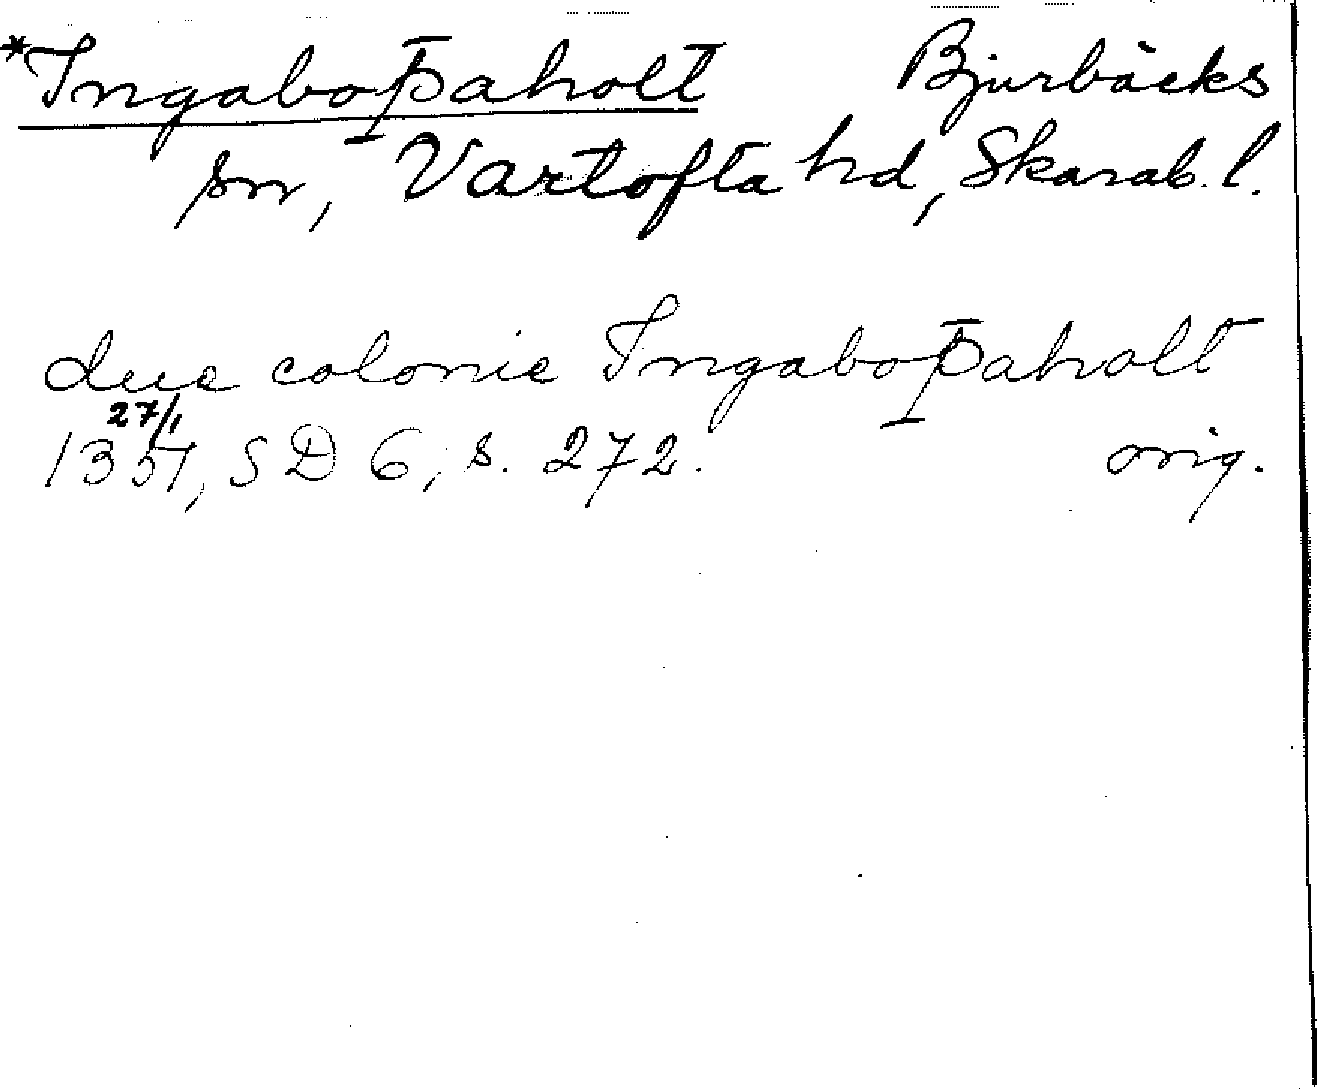 *Ingaboþaholt Bjurbäcks
sn, Vartofta hd, Skarab. l.
due colonie Ingaboþaholt
27/1
1351, SD 6, s. 272. orig.